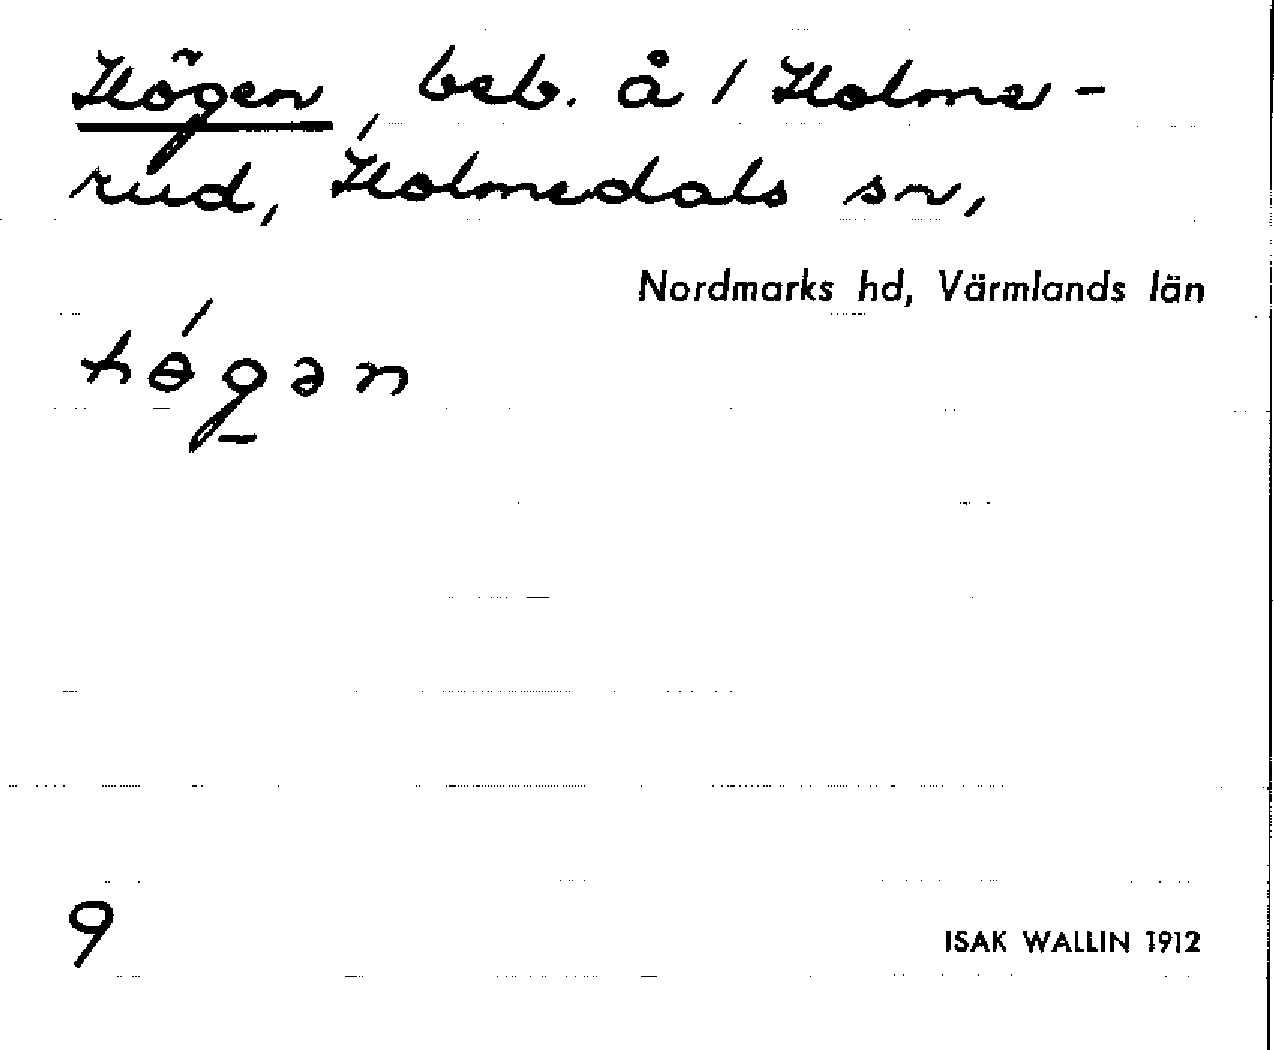 Högen, beb. å 1 Holme-
rud, Holmedals sn,
Nordmarks hd, Värmlands län
hǿgən
9
ISAK WALLIN 1912